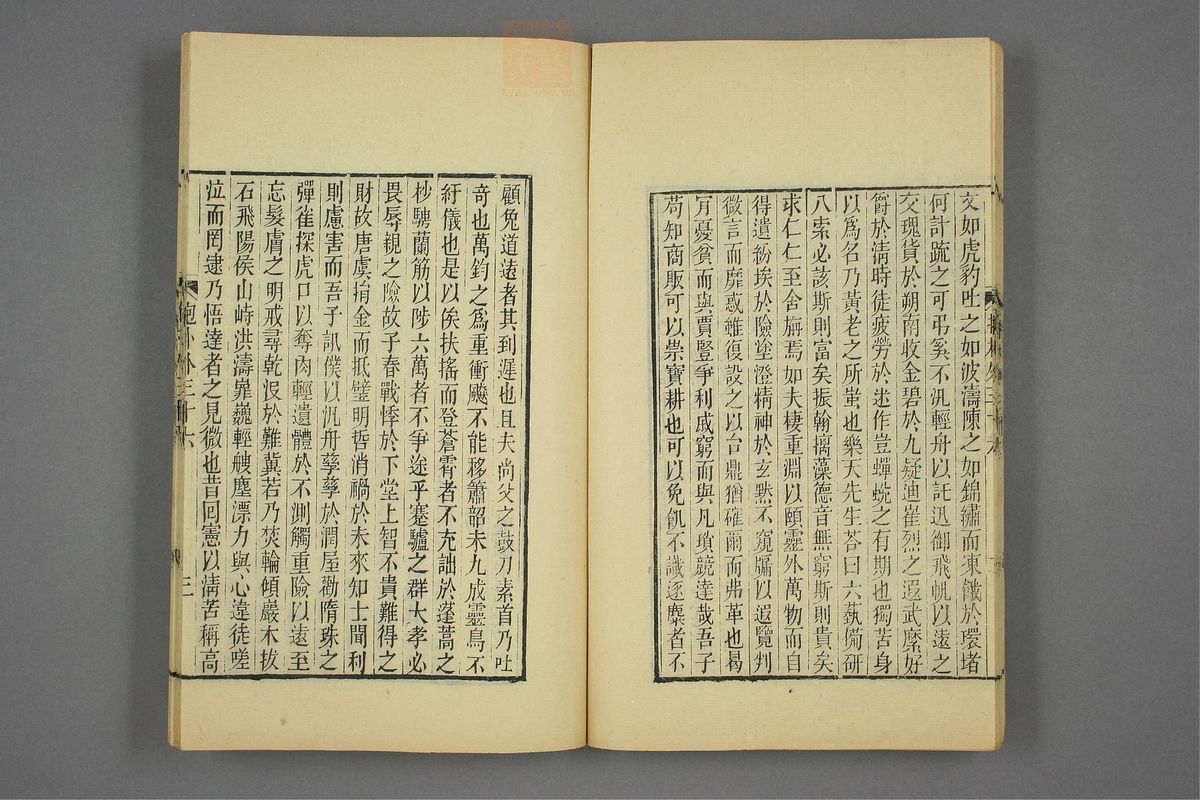 文如虎豹吐之如波濤陳之如錦繡而凍餓於環堵
何計䟽之可弔奚不汎輕舟以託迅御飛帆以遠之
交瑰貨於朔南收金碧於九疑迪崔烈之遐武縻好
爵於淸時徒疲勞於述作豈蟬蛻之有期也獨苦身
以爲名乃黃老之所蚩也樂天先生荅曰六藝備研
八索必該斯則富矣振翰摛藻德音無窮斯則貴矣
求仁仁至舍旃焉如夫棲重淵以頤靈外萬物而自
得遺紛埃於險塗澄精神於玄黙不窺牖以遐覽判
微言而靡惑雖復設之以台鼎猶確爾而弗革也曷
肎憂貧而與賈豎爭利戚窮而與凡瑣競達哉吾子
苟知商販可以崇寶耕也可以免飢不識逐麋者不
顧兔道遠者其到遲也且夫尚父之鼓刀素首乃吐
奇也萬鈞之爲重衝飚不能移簫韶未九成靈鳥不
紆儀也是以俟扶搖而登蒼霄者不充詘於蓬蒿之
杪騁蘭筋以陟六萬者不爭途乎蹇驢之群大孝必
畏辱親之險故子春戰悸於下堂上智不貴難得之
財故唐虞捐金而抵璧明哲消禍於未來知士聞利
則慮害而吾子訊僕以汎舟孳孳於潤屋勸隋珠之
彈雀探虎口以奪肉輕遺體於不測觸重險以遠至
忘髮膚之明戒尋乾沒於難冀若乃焚輪傾巖木拔
石飛陽侯山峙洪濤嶵巍輕艘塵漂力與心違徒嗟
泣而罔逮乃悟達者之見微也昔回憲以淸苦稱高
抱朴外三十六
三